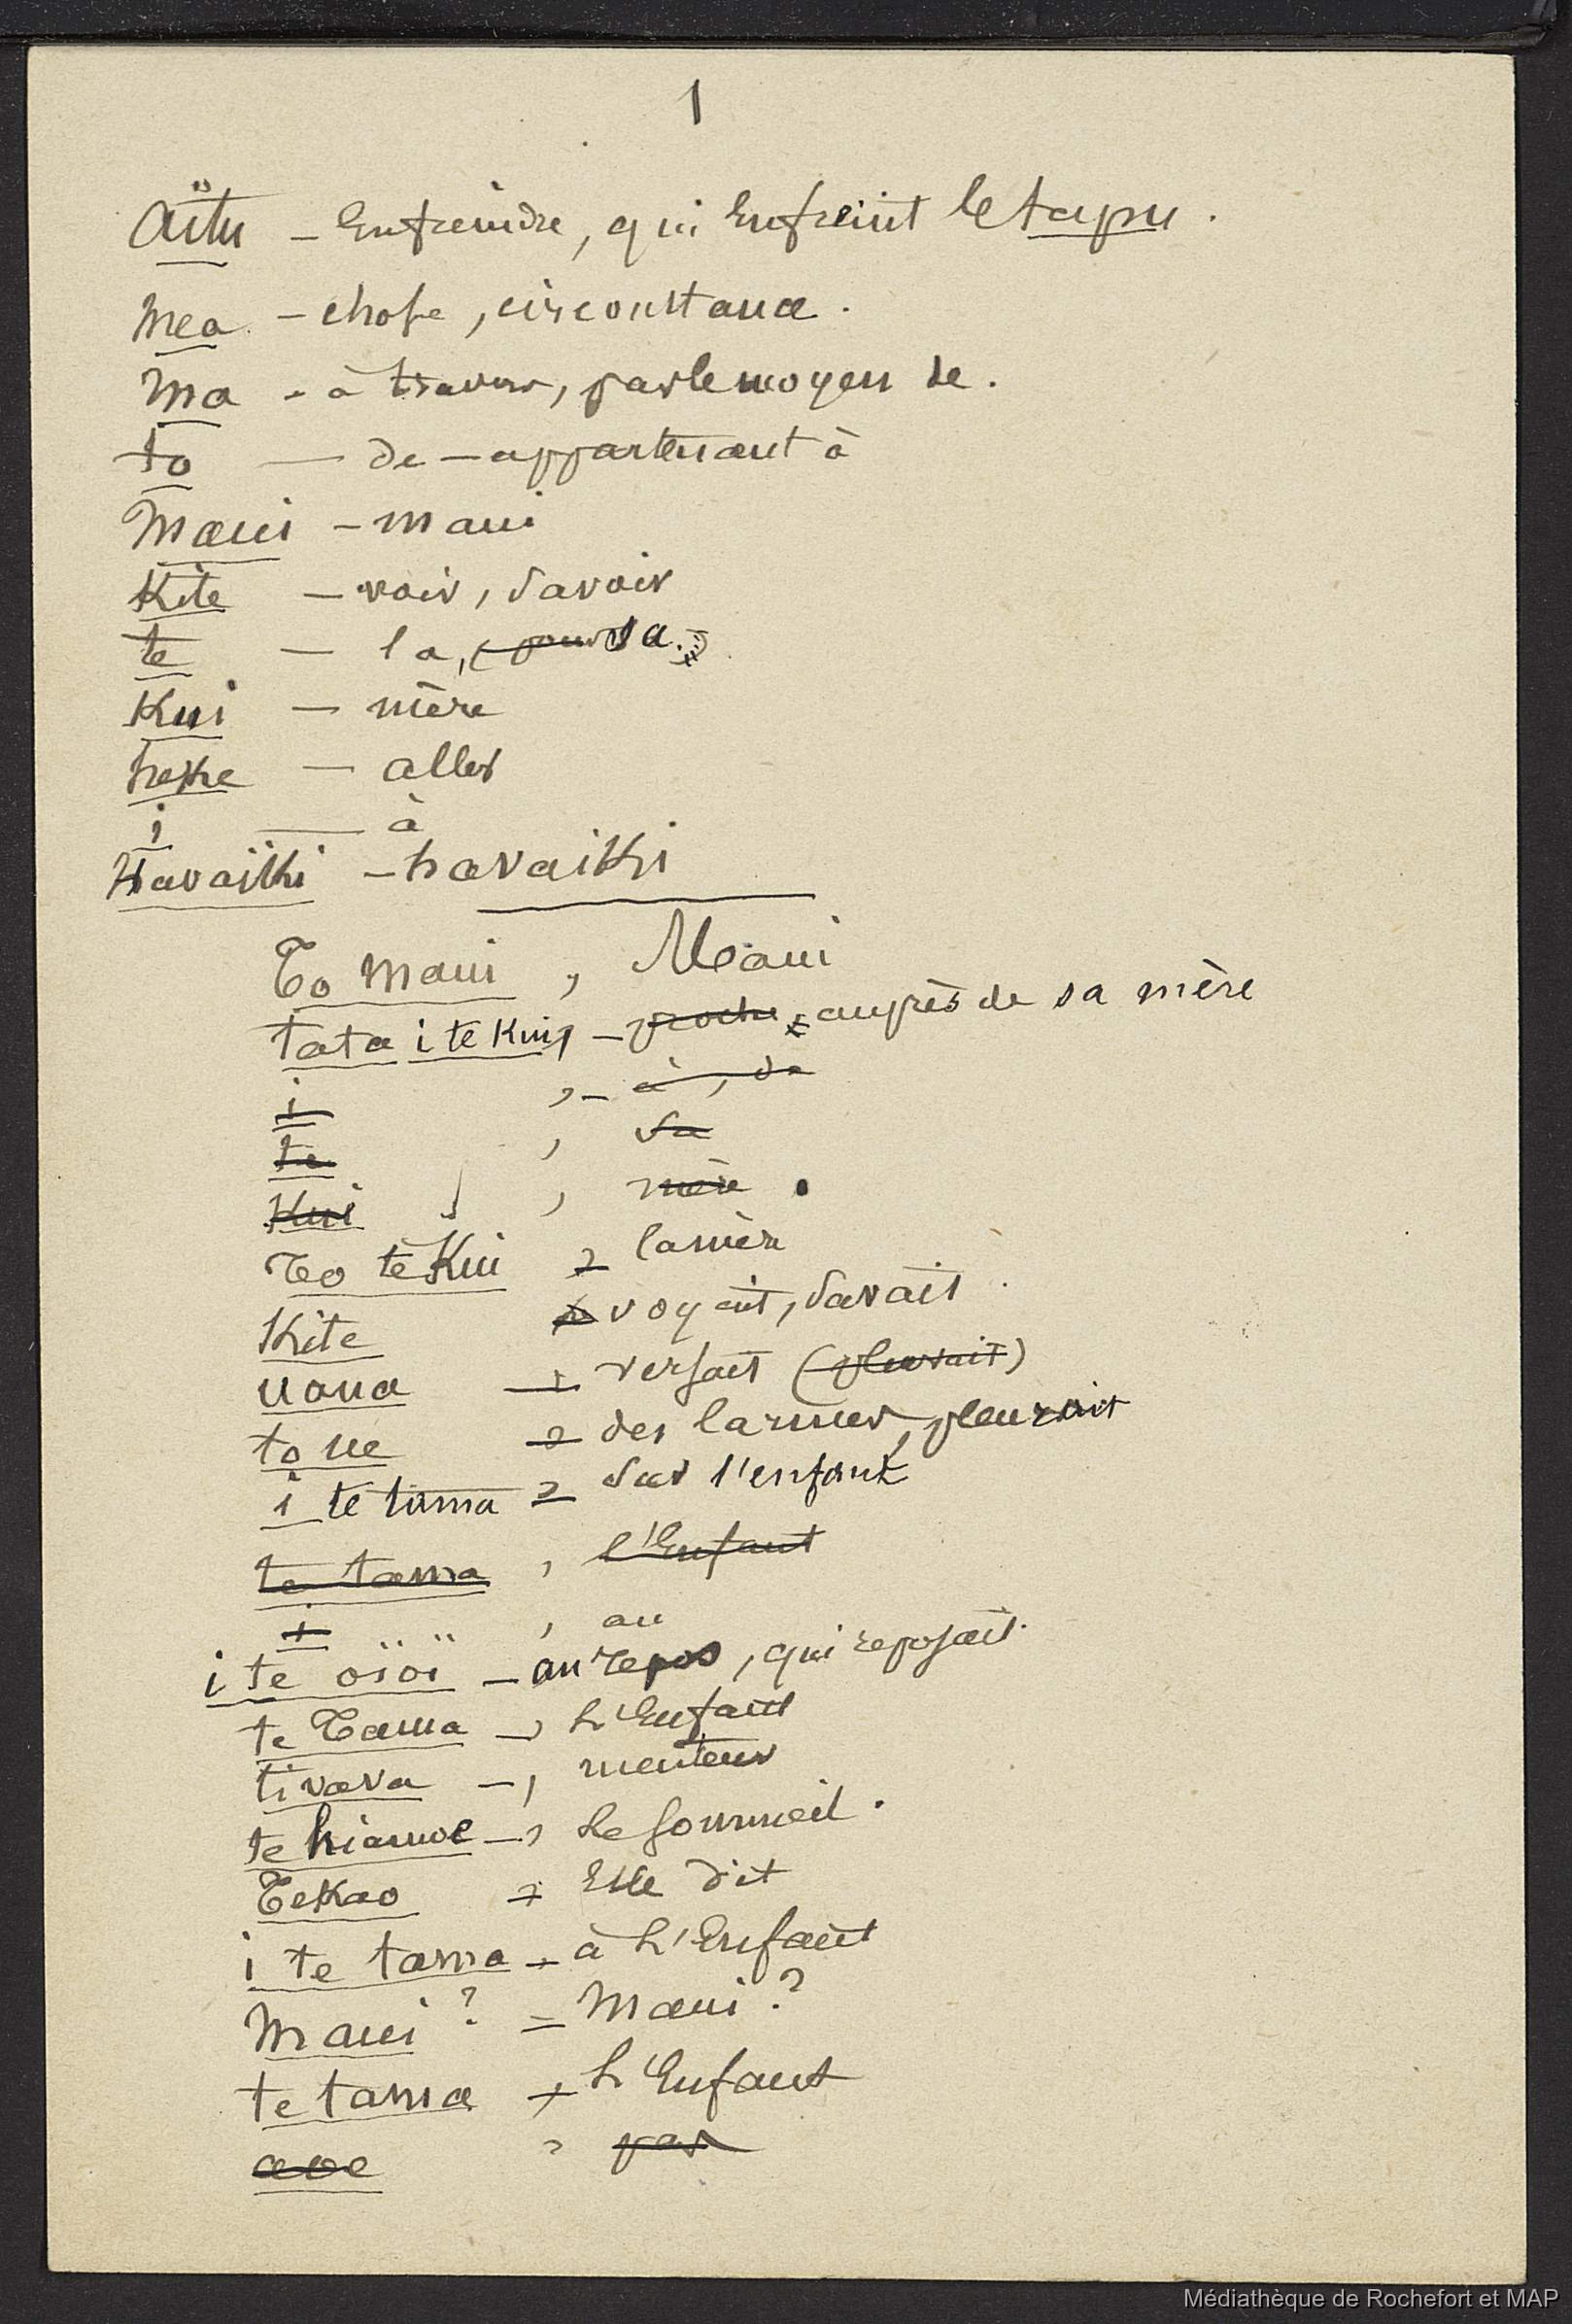 1
Aïtu - Enfreindre, qui Enfreint le tapu.
Mea - chose, circonstance.
Ma - à travers, par le moyen de.
to - de - appartenant à
Maui - maui
Kite - voir, savoir
te - la, (pour sa.)
Kui - mère
heke - aller
i - à
Havaïki - havaiki
To Maui, Maui
tata i te Kui, - proche auprès de sa mère
i , - à, de
te , sa
Kui , mère .
Teo te Kui , la mère
Kite voyait, savait
uaua , versait (pleuvait)
to ue , des larmes, pleurait
i te tama , sur l'enfant
te tama , l'Enfant
i , au
i te oïoï - au repos, qui reposait.
te Tama -, L'Enfant
tivava -, menteur
te hiamoe -, Le Sommeil.
Tekao , Elle dit
i te tama - à L'Enfant
Maui ? = Maui ?
te tama , L'Enfant
aoe , pas
Médiathèque de Rochefort et MAP